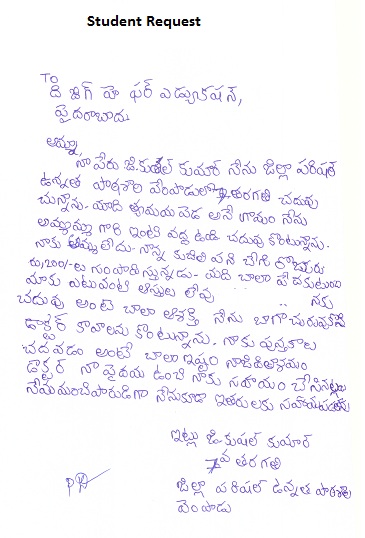 Student Request
To
ది జిగ్ హె ఫర్ ఎడ్యుకేషన్,
హైదరాబాదు
అమ్మా,
నా పేరు జి.కుశల్ కుమార్ నేను జిల్లా పరిషత్
ఉన్నత పాఠశాల వేంపాడులో 7వ తరగతి చదువు
చున్నాను. మాది అనే గ్రామం నేను
అమ్మమ్మ గారి ఇంటి వద్ద ఉండి చదువు కొంటున్నాను.
నాకు అమ్మ లేదు. నాన్న కూలి పని చేసి రోజుకు
రు,200/-లు సంపాదిస్తున్నాడు. మాది చాలా పేదకుటుంబం
మాకు ఎటువంటి ఆస్తులు లేవు నాకు
చదువు అంటే చాలా ఆశక్తి నేను బాగా చదువుకొని
డాక్టర్ కావాలను కొంటున్నాను. నాకు పుస్తకాలు
చదవడం అంటే చాలా ఇష్టం
డాక్టర్ నా పైదయ ఉంచి నాకు సహాయం చేసినట్లు
నేను మంచిపౌరుడిగా నేనుకూడా ఇతరులకు
ఇట్లు జి.కుషల్ కుమార్
7వ తరగతి
జిల్లా పరిషత్ ఉన్నత పాఠశాల
వేంపాడు